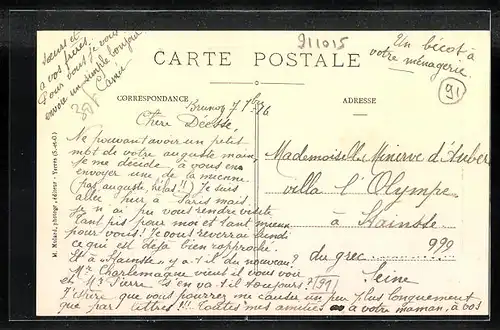 sœurs et
à vos frères.
Pour vous je vous
envoie un simple bonjour.
Camir
30f
911015
Un bécot à
votre ménagerie.
91
CARTE POSTALE
CORRESPONDANCE
ADRESSE
M. Mulard, photogr.-éditeur - Yerres (S.-et-O.)
Brunoy 7 7bre 16
Chère Déesse,
Ne pouvant avoir un petit
mot de votre auguste main,
je me décide à vous en
envoyer une de la mienne
(pas auguste, hélas !!) Je suis
allée hier à Paris mais
je n'ai pu vous rendre visite
tant pis pour moi et tant mieux
pour vous! Je vous reverrai lundi
ce qui est déjà bien rapproché.
Et à «Hainste» y a-t-il du nouveau?
Mr Charlemagne vient-il vous voir
et Mr Pierre s'en va-t-il toujours? (91)
J'espère que vous pourrez me causer un peu plus longuement
que par lettres!!! Toutes mes amitiés à votre maman, à vos
Mademoiselle Minerve d'Auber
villa l'Olympe
à Hainste
999
du grec
Seine